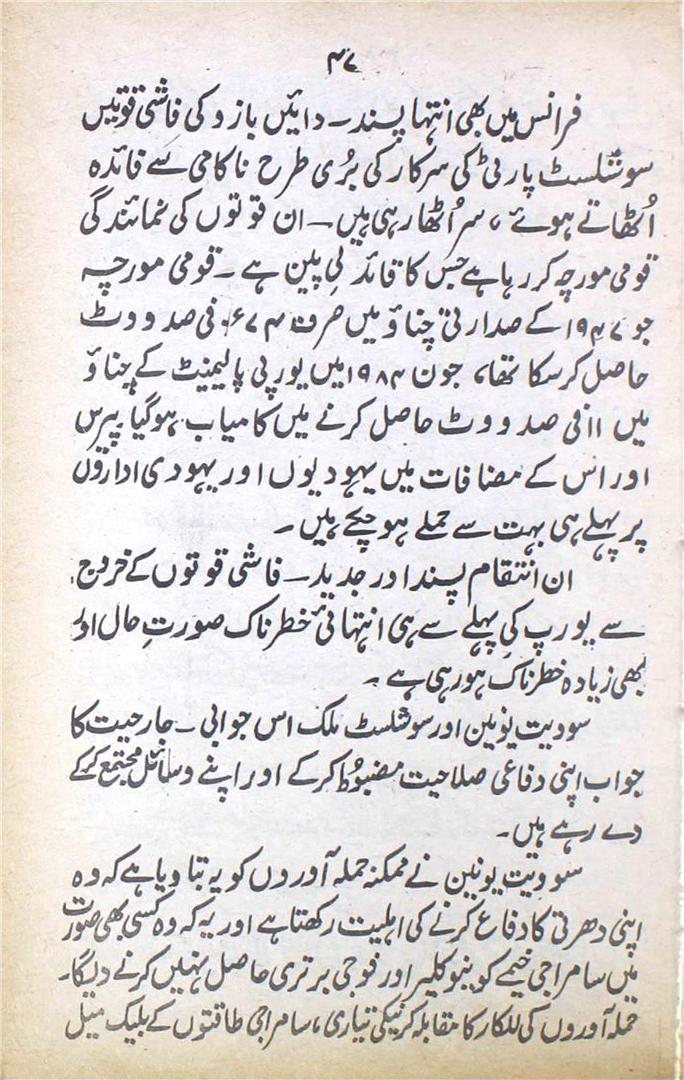 ۴۷
فرانس میں بھی انتہا پسند۔ دائیں بازو کی فاشی قوتیں
سوشلسٹ پارٹی کی سرکار کی بُری طرح ناکامی سے فائدہ
اُٹھاتے ہوئے، سر اُٹھا رہی ہیں۔ ان قوتوں کی نمائندگی
قومی مورچہ کر رہا ہے جس کا قائد لی پین ہے۔ قومی مورچہ
جو ۱۹۷۴ کے صدارتی چناؤ میں صرف ۰۶۷۴ فی صد ووٹ
حاصل کر سکا تھا، جون ۱۹۸۴ میں یورپی پالیمنیٹ کے چناؤ
میں ۱۱ فی صد ووٹ حاصل کرنے میں کامیاب ہو گیا۔ پیرس
اور اس کے مضافات میں یہودیوں اور یہودی اداروں
پر پہلے ہی بہت سے حملے ہو چکے ہیں۔
ان انتقام پسند اور جدید۔ فاشی قوتوں کے خروج
سے یورپ کی پہلے سے ہی انتہائی خطرناک صورتِ حال اور
بھی زیادہ خطرناک ہو رہی ہے۔
سوویت یونین اور سوشلسٹ ملک اس جوابی۔ جارحیت کا
جواب اپنی دفاعی صلاحیت مضبوط کر کے اور اپنے وسائل مجتمع کر کے
دے رہے ہیں۔
سوویت یونین نے ممکنہ حملہ آوروں کو یہ بتا دیا ہے کہ وہ
اپنی دھرتی کا دفاع کرنے کی اہلیت رکھتا ہے اور یہ کہ وہ کسی بھی صورت
میں سامراجی خیمے کو نیوکلیر اور فوجی برتری حاصل نہیں کرنے دیگا۔
حملہ آوروں کی للکار کا مقابلہ کرنیکی تیاری، سامراجی طاقتوں کے بلیک میل